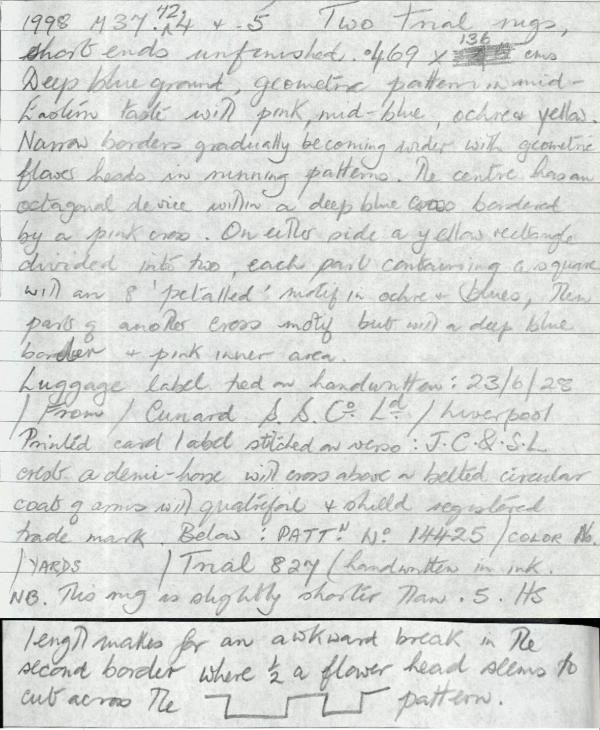 1998 M37.42.4 + .5 Two Trial rugs,
short ends unfinished. .469 x 136 cms
Deep blue ground, geometric pattern in mid-
Eastern taste with pink, mid-blue, ochre & yellow.
Narrow borders gradually becoming wider with geometric
flower heads in running patterns. The centre has an
octagonal device within a deep blue cross bordered
by a pink cross. On either side a yellow rectangle
divided into two, each part containing a square
with an 8 'petalled' motif in ochre + blues, then
part of another cross motif but with a deep blue
border + pink inner area.
Luggage label tied on handwritten: 23/6/28
/ From / Cunard S.S. Co. Ld. / Liverpool
Printed card label stitched on verso: J.C.&.S.L
crest a demi-horse with cross above a belted circular
coat of arms with quatrefoil + shield registered
trade mark. Below: PATTN No 14425 / COLOR No.
/ YARDS / Trial 827 / handwritten in ink.
NB. This rug is slightly shorter than .5. HS
length makes for an awkward break in the
second border where ½ a flower head seems to
cut across the pattern.